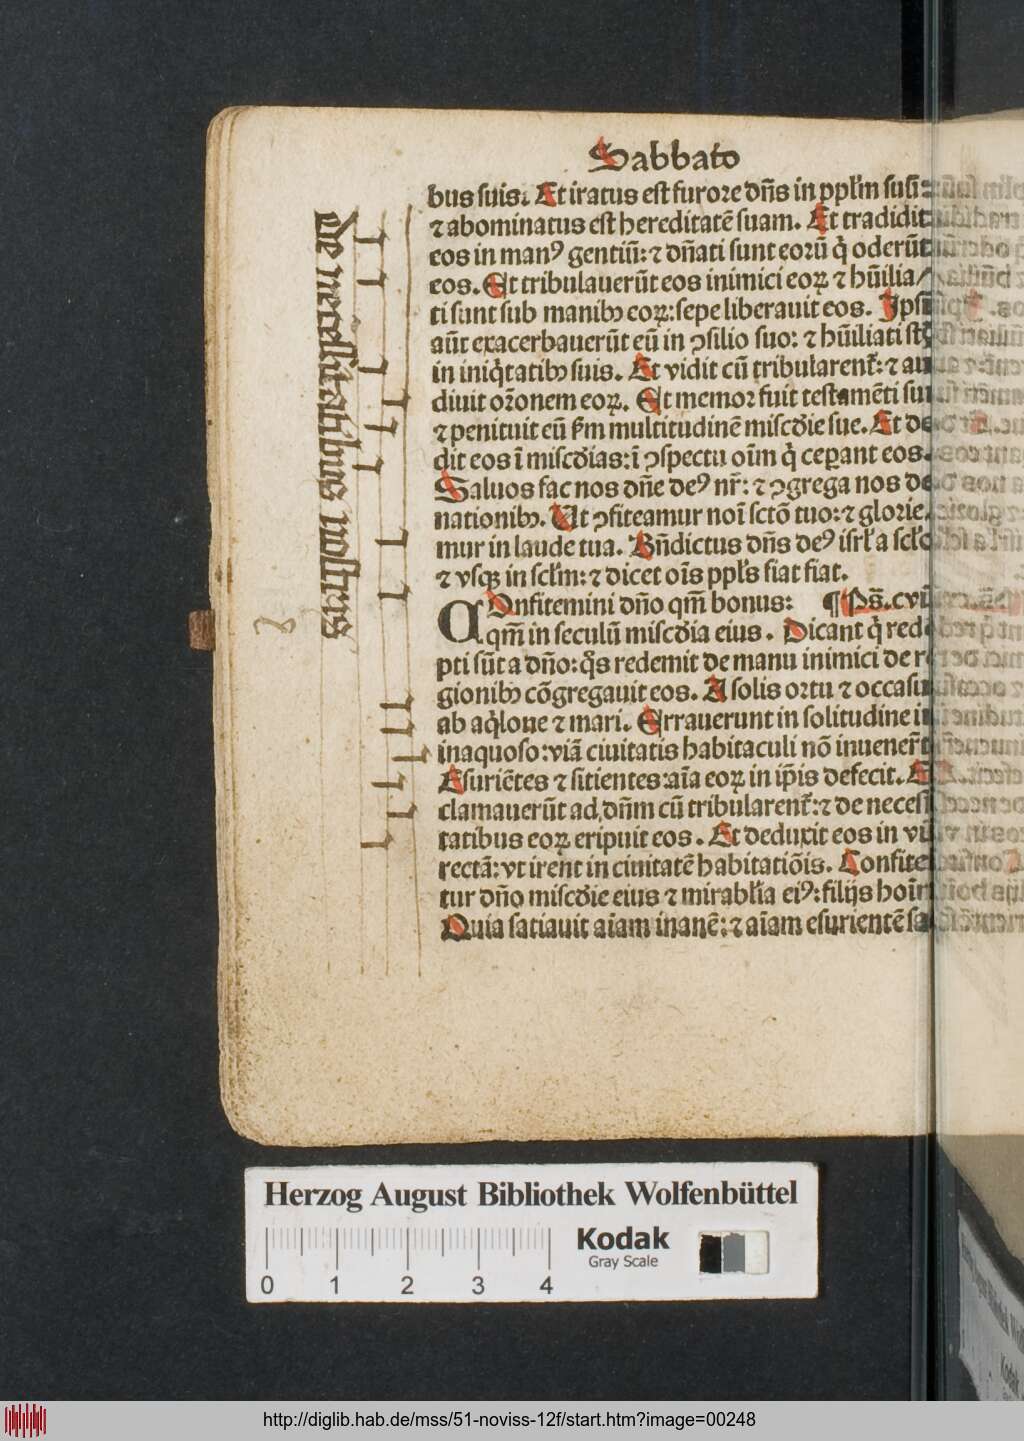 Sabbato
bus suis. Et iratus est furore dñs in ppl'm suū:
⁊ abominatus est hereditatē suam. Et tradidit
eos in manꝰ gentiū: ⁊ dñati sunt eorū q̇ oderūt
eos. Et tribulauerūt eos inimici eoꝝ ⁊ hūilia/
ti sunt sub manibꝫ eoꝝ: sepe liberauit eos. Ipsi
aūt exacerbauerūt eū in ꝯsilio suo: ⁊ hūiliati st̄
in iniq̇tatibꝫ suis. Et vidit cū tribularent᷑: ⁊ au
diuit orōnem eoꝝ. Et memor fuit testamēti sui
⁊ penituit eū ẜm multitudinē miscd̄ie sue. Et de
dit eos ī miscd̄ias: ī ꝯspectu oīm q̇ ceꝑant eos.
Saluos fac nos dn̄e deꝰ nr̄: ⁊ ꝯgrega nos de
nationibꝫ. Ut ꝯfiteamur noī sctō tuo: ⁊ glorie
mur in laude tua. Bn̄dictus dn̄s deꝰ isrl' a scl'o
⁊ vsqꝫ in scl'm: ⁊ dicet oīs ppl's fiat fiat.
COnfitemini dño qm̄ bonus: ¶ Ps̄. cvi
qm̄ in seculū miscd̄ia eius. Dicant q̇ rede
pti sūt a dño: q̄s redemit de manu inimici de re
gionibꝫ cōgregauit eos. A solis ortu ⁊ occasu
ab aq̇lone ⁊ mari. Errauerunt in solitudine in
inaquoso: viā ciuitatis habitaculi nō inuener̄t
Esuriētes ⁊ sitientes: aīa eoꝝ in ip̄is defecit. Et
clamauerūt ad dn̄m cū tribularent᷑: ⁊ de necessi
tatibus eoꝝ eripuit eos. Et deduxit eos in viā
rectā: vt irent in ciuitatē habitatiōis. Confitean
tur dño miscd̄ie eius ⁊ mirabl'ia eiꝰ: filijs hoīm
Quia satiauit aīam inanē: ⁊ aīam esurientē sa
de necessitatibus nostris
Herzog August Bibliothek Wolfenbüttel
Kodak
Gray Scale
0 1 2 3 4
http://diglib.hab.de/mss/51-noviss-12f/start.htm?image=00248